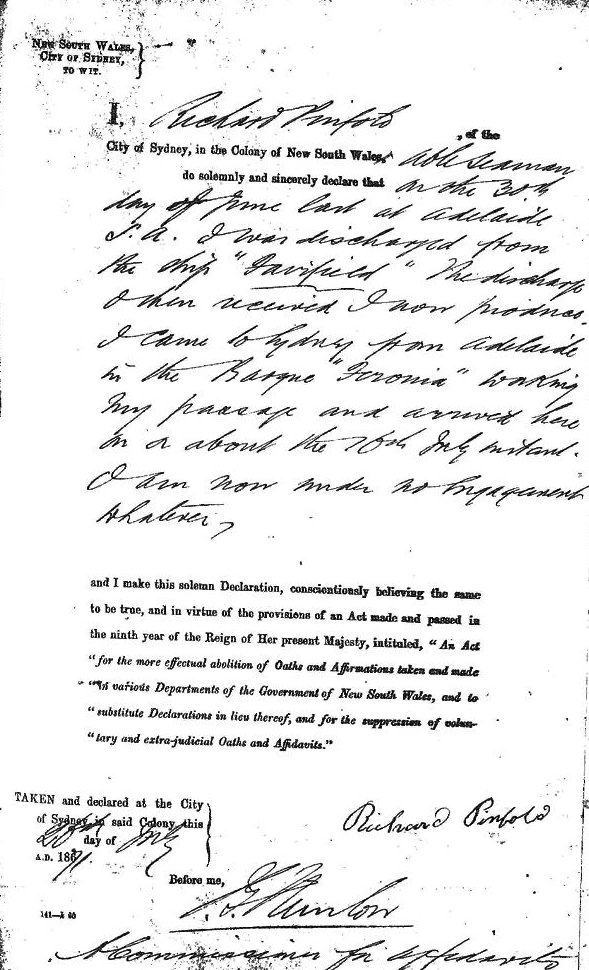 NEW SOUTH WALES,
CITY OF SYDNEY,
TO WIT.
I, Richard Pinfold, of the
City of Sydney, in the Colony of New South Wales, Able Seaman
do solemnly and sincerely declare that on the 30th
day of June last at Adelaide
S.A. I was discharged from
the ship "Fairfield" The discharge
I then received I now produce.
I came to Sydney from Adelaide
in the Barque "Feronia" working
my passage and arrived here
on or about the 16th July instant.
I am now under no Engagement
whatever,
and I make this solemn Declaration, conscientiously believing the same
to be true, and in virtue of the provisions of an Act made and passed in
the ninth year of the Reign of Her present Majesty, intituled, "An Act
"for the more effectual abolition of Oaths and Affirmations taken and made
"in various Departments of the Government of New South Wales, and to
"substitute Declarations in lieu thereof, and for the suppression of volun-
"tary and extra-judicial Oaths and Affidavits."
TAKEN and declared at the City
of Sydney in said Colony, this
day of July
A.D. 1871
Richard Pinfold
Before me,
A Commissioner for Affidavits